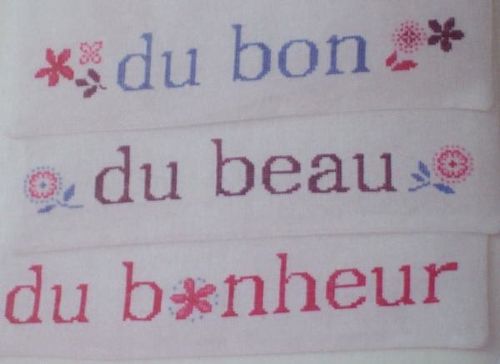 du bon
du beau
du bonheur